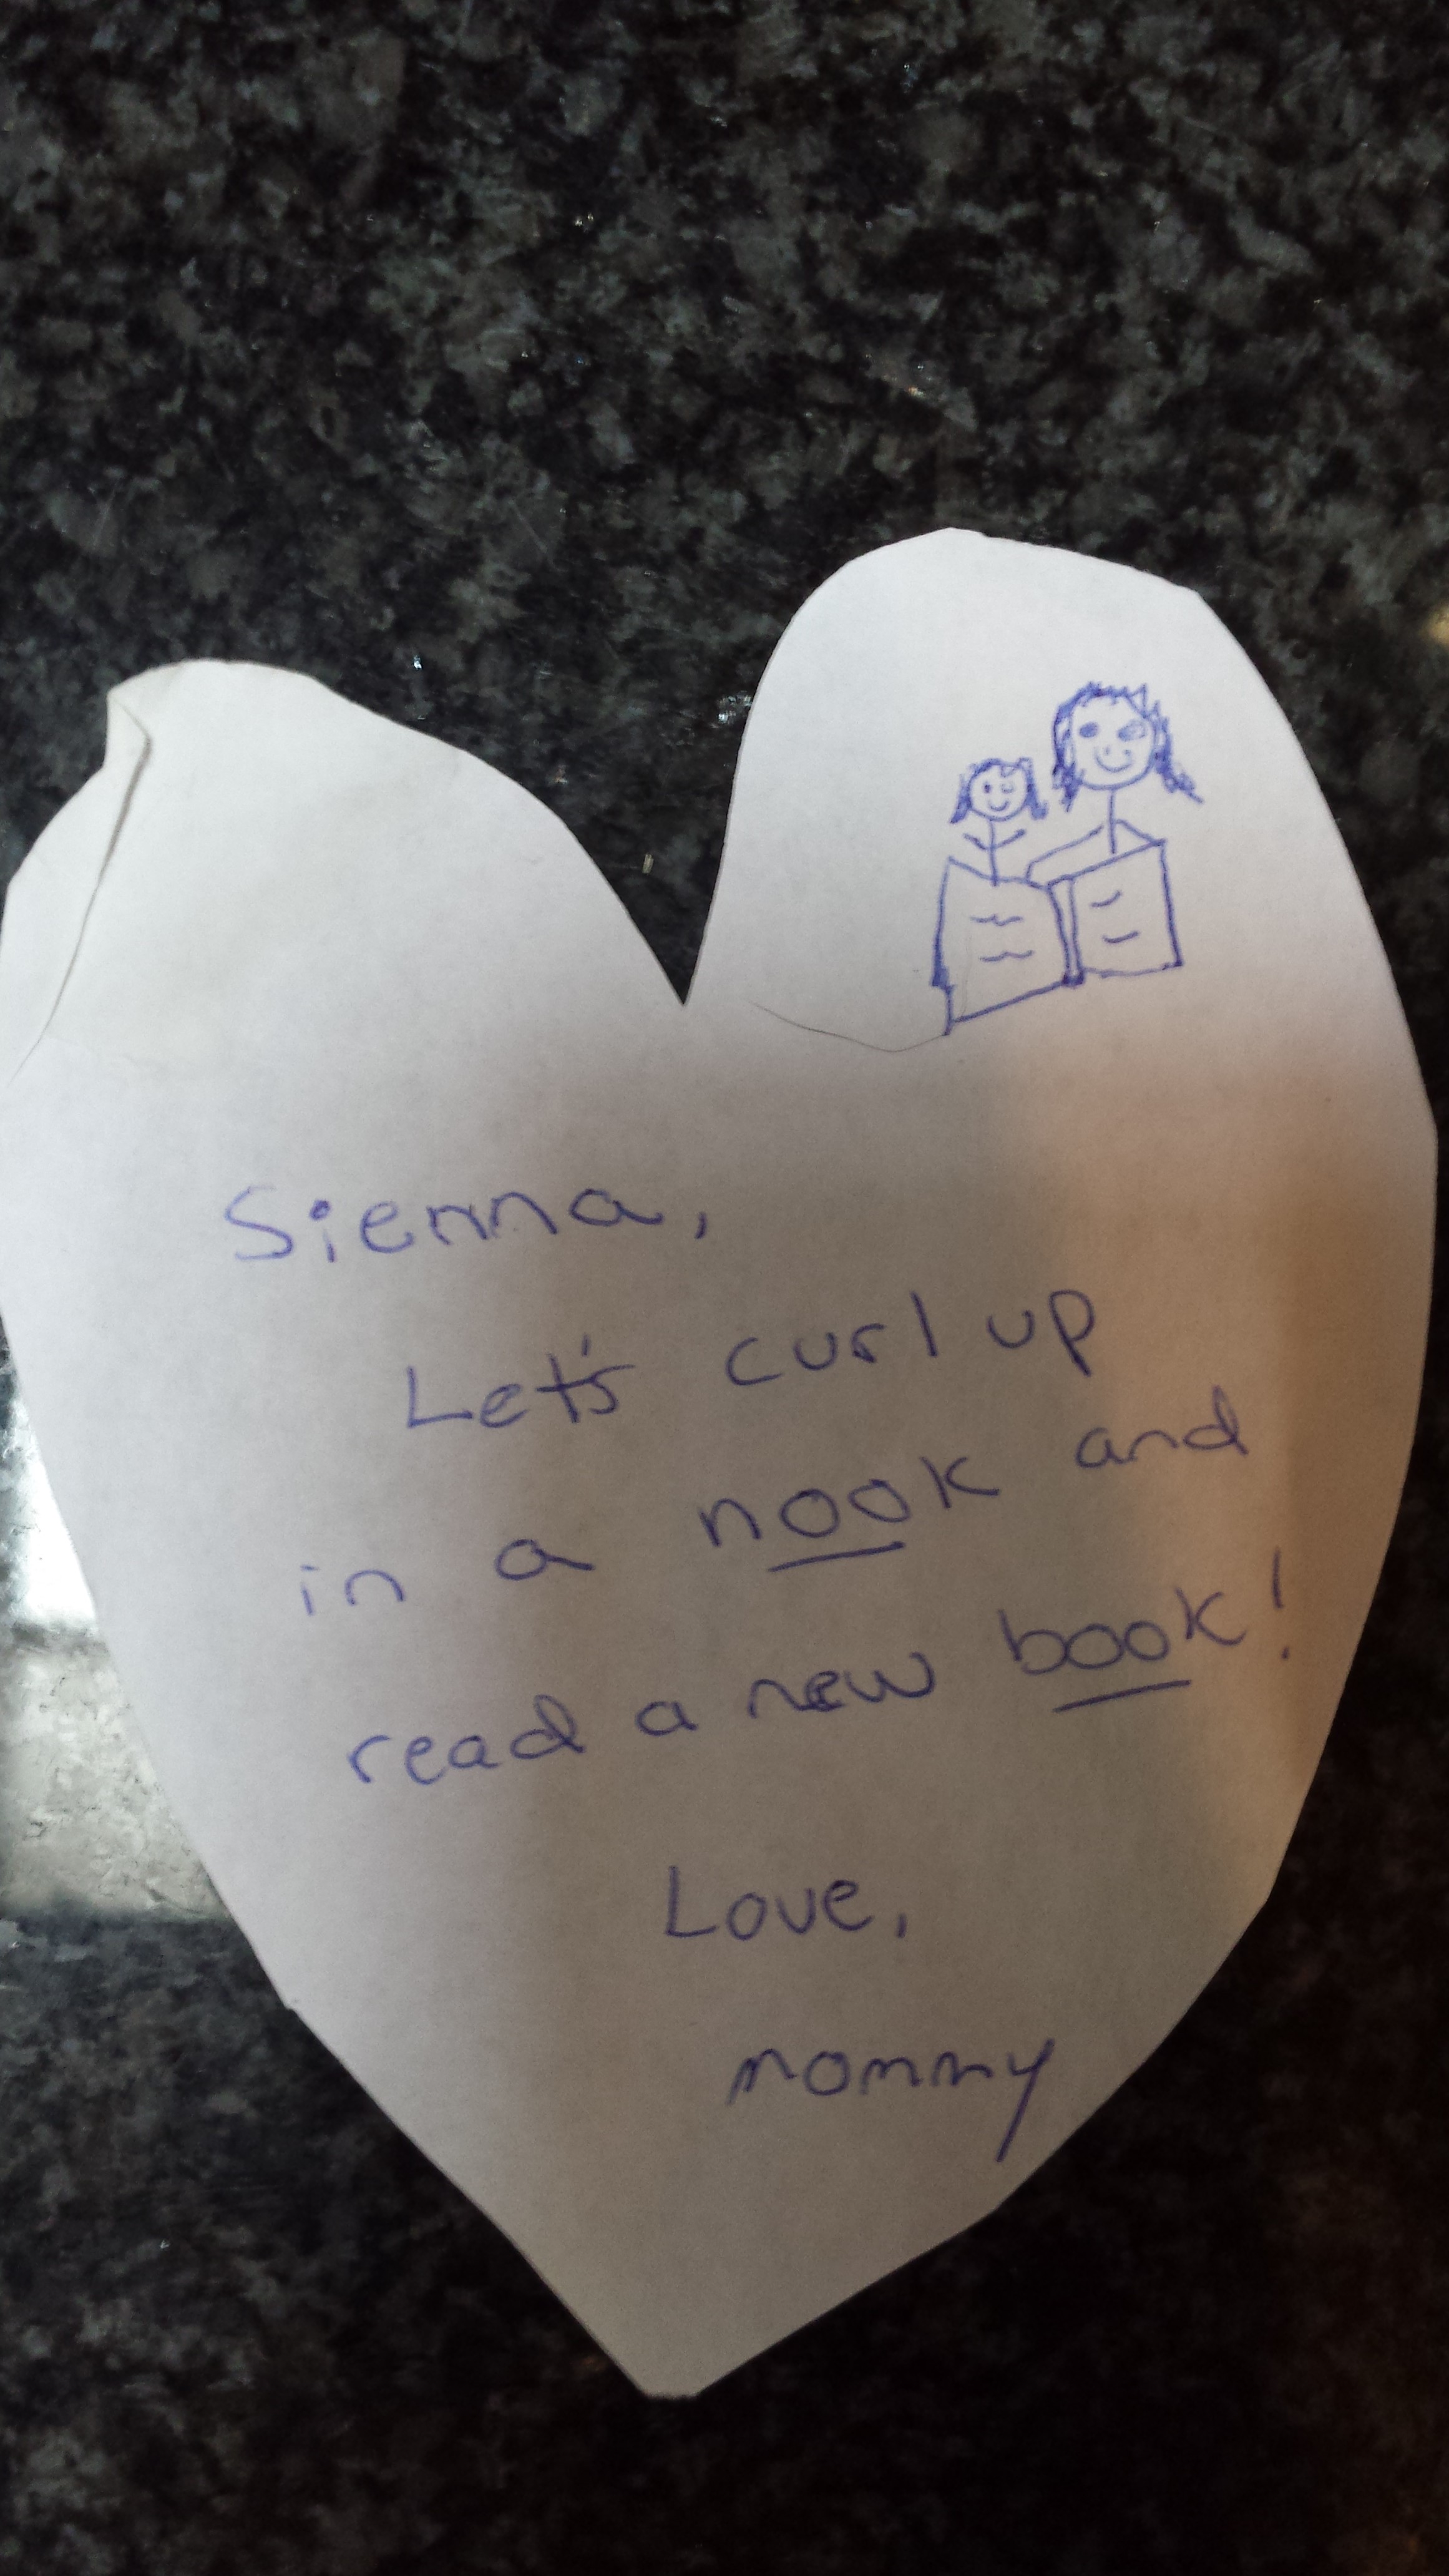 Sienna,
Let's curl up
in a nook and
read a new book!
Love,
mommy